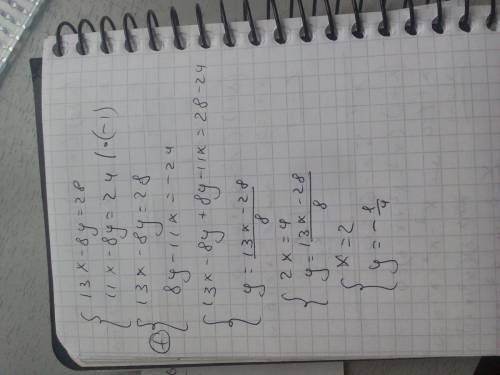 { 13x - 8y = 28
11x - 8y = 24 | · (-1)
{ 13x - 8y = 28
⊕ 8y - 11x = -24
{ 13x - 8y + 8y - 11x = 28 - 24
y = (13x - 28)/8
{ 2x = 4
y = (13x - 28)/8
{ x = 2
y = -1/4